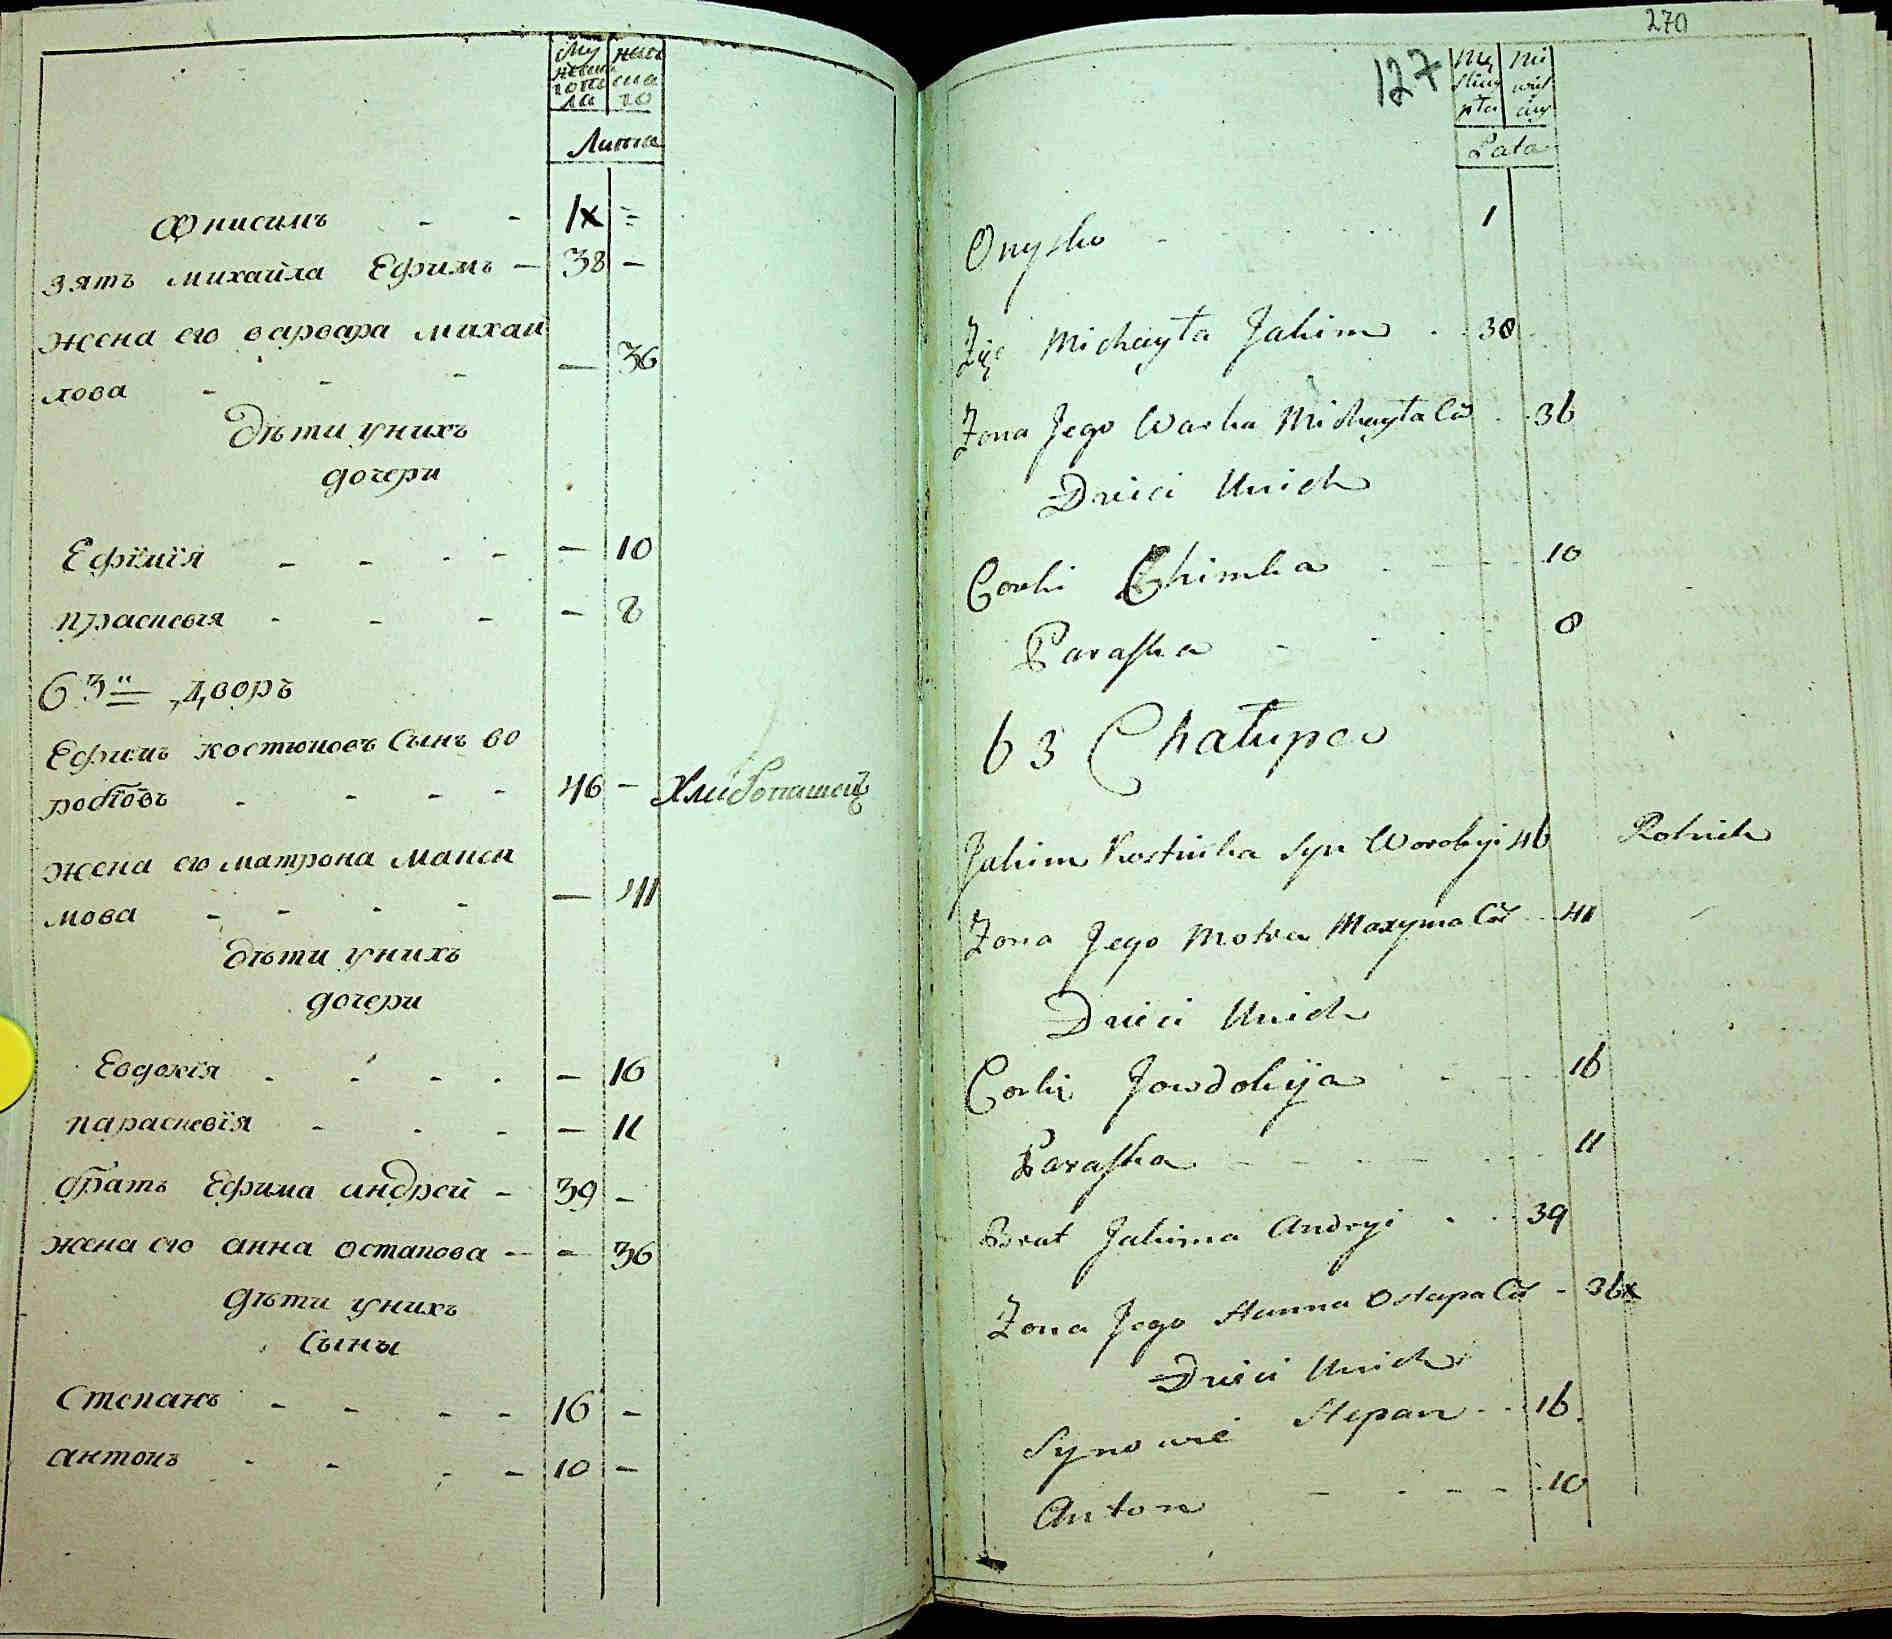 Му жеска го по ла
женс ска го
Лѣта
Онисимъ - - 1x =
зять михайла Ефимъ - 38 -
жена его варвара михай
лова - - - - 36
дѣти унихъ
дочери
Ефимїя - - - - - 10
прасковїя - - - - 8
63й дворъ
Ефимъ костюковъ сынъ во
робїовъ - - - - 46 - Хлибопашецъ
жена его матрона макси
мова - - - - - 41
дѣти унихъ
дочери
Евдокїя - - - - - 16
параскевїя - - - - 11
братъ Ефима андрей - 39 -
жена его анна остапова - - 36
дѣти унихъ
сыны
Степанъ - - - - 16 -
антонъ - - - - 10 -
270
127
Lata
Onysko 1
Zięć Michayła Jakim 38
Żona Jego Warka Michayła Cór 36
Dzieci Unich
Corki Chimka 10
Paraska 8
63 Chałupa
Jakim Kostiuka Syn Worobyi 46 Rolnik
Żona Jego Motra Maxyma Cór 41
Dzieci Unich
Corki Jowdokija 16
Paraska 11
Brat Jakima Andryi 39
Żona Jego Hanna Ostapa Cór - 36x
Dzieci Unich
Synowie Stepan 16
Anton 10